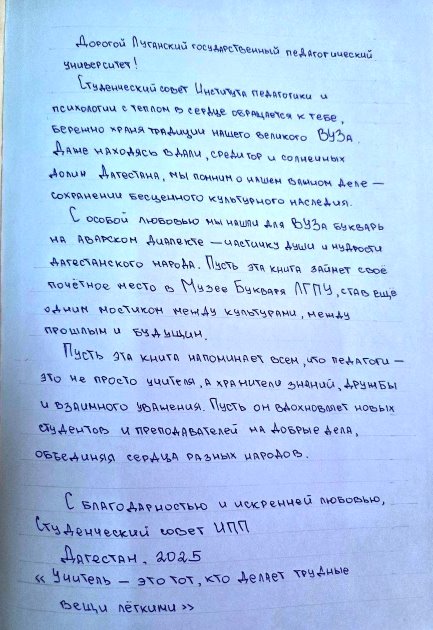 Дорогой Луганский государственный педагогический
университет!
Студенческий совет Института педагогики и
психологии с теплом в сердце обращается к тебе,
бережно храня традиции нашего великого ВУЗа.
Даже находясь вдали, среди гор и солнечных
долин Дагестана, мы помним о нашем важном деле –
сохранении бесценного культурного наследия.
С особой любовью мы нашли для ВУЗа букварь
на аварском диалекте – частичку души и мудрости
дагестанского народа. Пусть эта книга займёт своё
почётное место в Музее Букваря ЛГПУ, став ещё
одним мостиком между культурами, между
прошлым и будущим.
Пусть эта книга напоминает всем, что педагоги –
это не просто учителя, а хранители знаний, дружбы
и взаимного уважения. Пусть он вдохновляет новых
студентов и преподавателей на добрые дела,
объединяя сердца разных народов.
С благодарностью и искренней любовью,
Студенческий совет ИПП
Дагестан, 2025
«Учитель – это тот, кто делает трудные
вещи лёгкими»